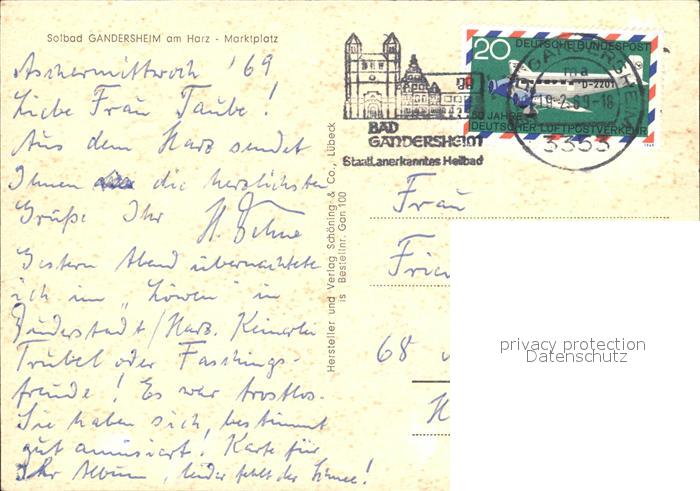 Solbad GANDERSHEIM am Harz - Marktplatz
Aschermittwoch '69
Liebe Frau Taube!
Aus dem Harz sendet
Ihnen die herzlichsten
Grüße Ihr H.
Gestern Abend übernachtete
ich im "Löwen" in
Duderstadt/Harz. Keinerlei
Trubel oder Faschings-
freude! Es war trostlos.
Sie haben sich, bestimmt
gut amüsiert! Karte für
Ihr Album, leider fehlt der Schnee!
Hersteller und Verlag Schöning & Co., Lübeck
is Bestellnr. Gan 100
BAD
GANDERSHEIM
Staatl. anerkanntes Heilbad
20 DEUTSCHE BUNDESPOST
D-2201
50 JAHRE
DEUTSCHER LUFTPOSTVERKEHR
1969
GANDERSHEIM
ma
19-2.69-18
3353
Frau
68
privacy protection
Datenschutz